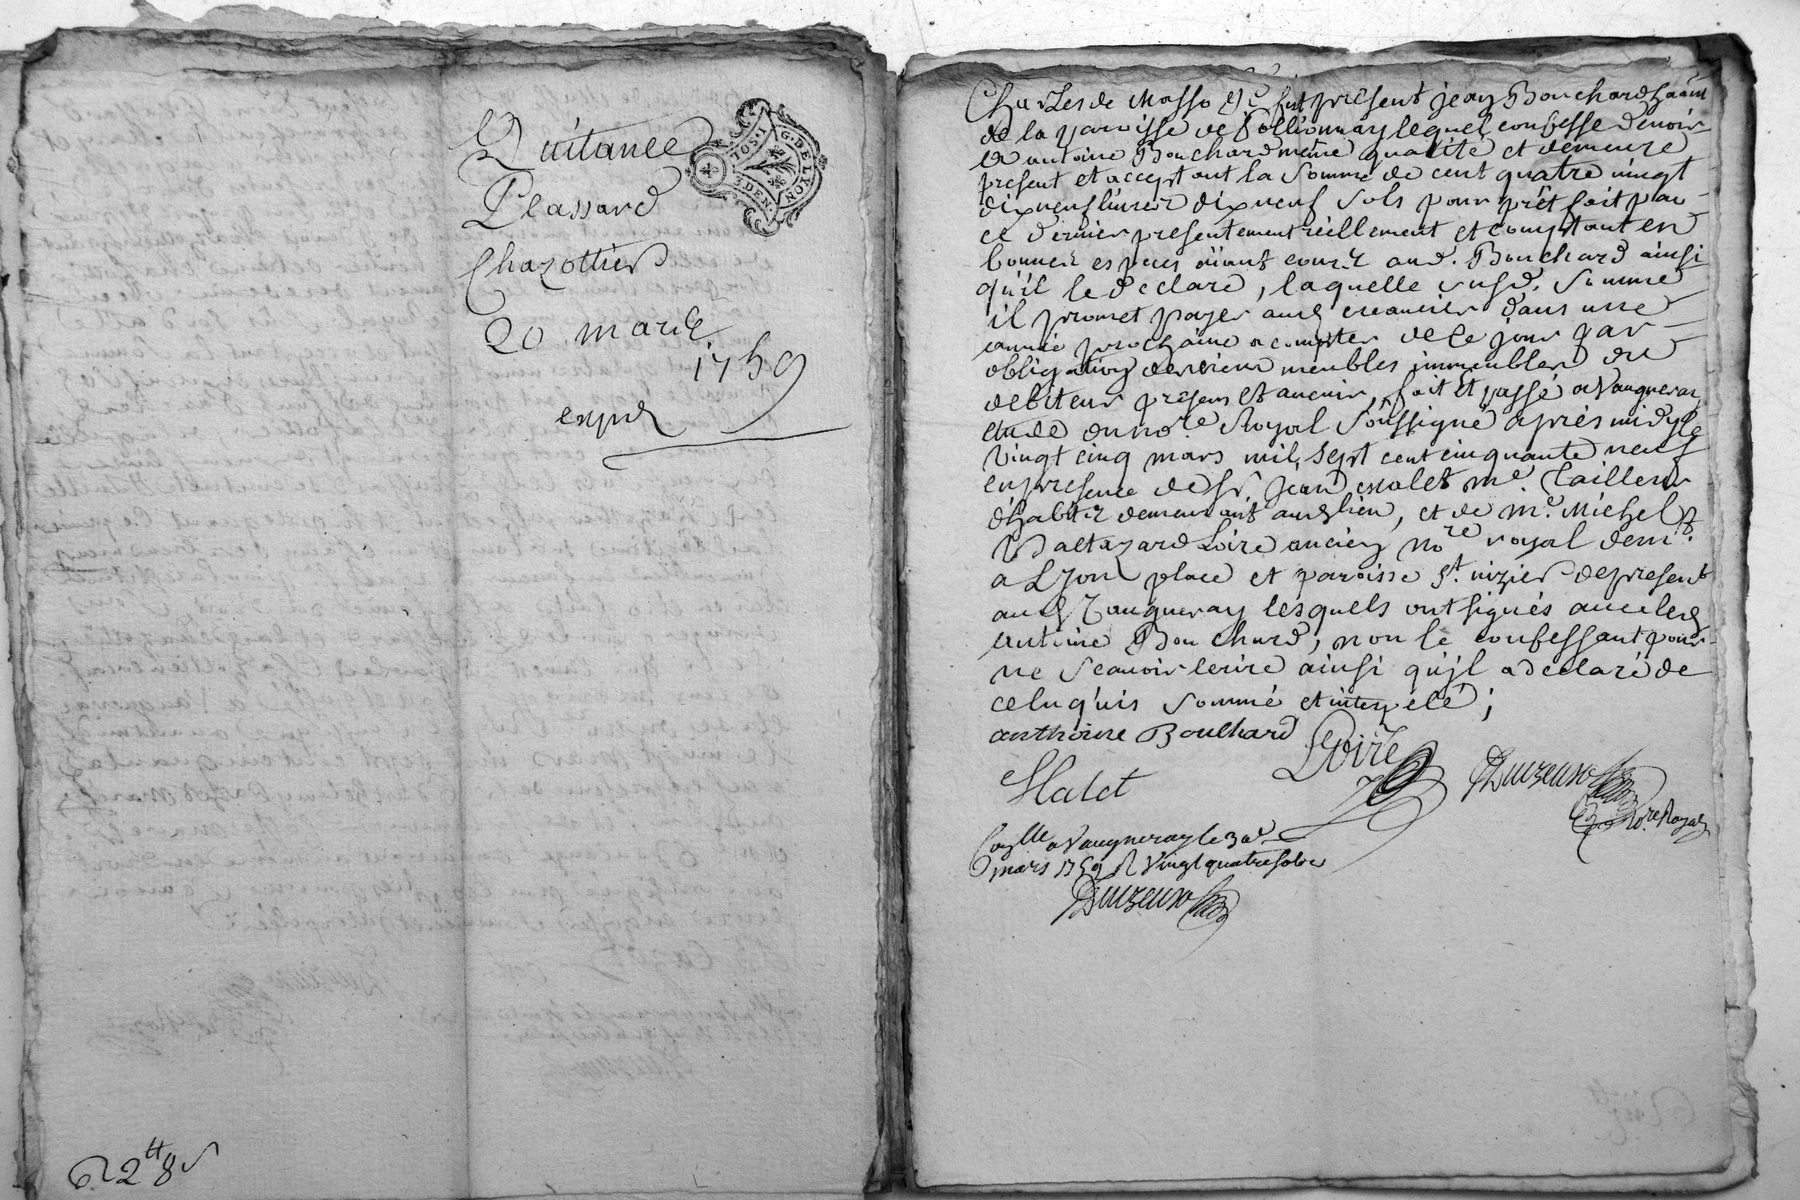 Quitance
Plassard
Chazottier
20 mars
1759
expd
G. DE LYON
1 OS. I
3 DEN.
62tt 8s
Charles de Masso &c fut présent jean Bouchard
de la paroisse de Pollionnay lequel confesse devoir
a antoine Bouchard même qualité et demeure
présent et acceptant la Somme de cent quatre vingt
dix neuf livres dix neuf sols pour prêt fait par
ce dernier présentement réellement et comptant en
bonnes espèces aiant cours aud. Bouchard ainsi
qu'il le déclare, laquelle susd. Somme
il promet payer aud créancier dans une
année prochaine a compter de ce jour par
obligation de ses biens meubles immeubles du
debiteur présens et avenir, fait et passé a Vaugneray
etude du no.re Royal Soussigné après midy le
Vingt cinq mars mil sept cent cinquante neuf
en présence de Sr. jean malet me. tailleur
d'habitz demeurant aud lieu, et de me. Michel
Baltazard Loire ancien nore royal demt.
a Lyon place et paroisse St. nizier de présent
aud Vaugneray lesquels ont signés avec led
antoine Bouchard, non le confessant pour
ne scavoir écrire ainsi qu'jl a déclaré de
ce luquis sommé et interpélé;
anthoine Bouchard Loire
Malet
no.re Royal
Conlle a Vaugneray le 30e
mars 1759 R Vingt quatre sols